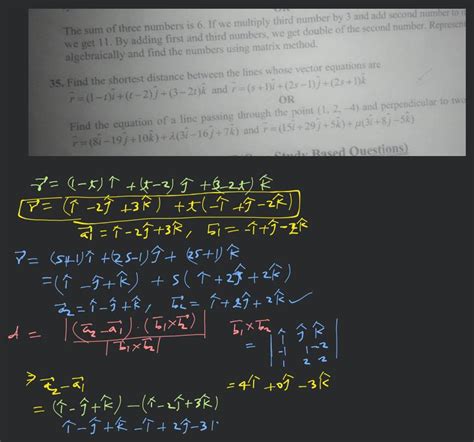 OR
The sum of three numbers is 6. If we multiply third number by 3 and add second number to
we get 11. By adding first and third numbers, we get double of the second number. Represent
algebraically and find the numbers using matrix method.
35. Find the shortest distance between the lines whose vector equations are
r⃗ = (1−t)î + (t−2)ĵ + (3−2t)k̂ and r⃗ = (s+1)î + (2s−1)ĵ − (2s+1)k̂
OR
Find the equation of a line passing through the point (1, 2, −4) and perpendicular to two
r⃗ = (8î − 19ĵ + 10k̂) + λ(3î − 16ĵ + 7k̂) and r⃗ = (15î + 29ĵ + 5k̂) + μ(3î + 8ĵ − 5k̂)
Study Based Questions)
r⃗ = (1−t) î + (t−2) ĵ + (3−2t) k̂
r⃗ = (î − 2ĵ + 3k̂) + t(−î + ĵ − 2k̂)
a₁⃗ = î − 2ĵ + 3k̂, b₁⃗ = −î + ĵ − 2k̂
r⃗ = (s+1) î + (2s−1) ĵ + (2s+1) k̂
= (î − ĵ + k̂) + s (î + 2ĵ + 2k̂)
a₂⃗ = î − ĵ + k̂, b₂⃗ = î + 2ĵ + 2k̂ ✓
d = |(a₂⃗ − a₁⃗) · (b₁⃗ × b₂⃗)| / |b₁⃗ × b₂⃗|
b₁⃗ × b₂⃗
= | î ĵ k̂
−1 1 −2
1 2 2 |
a₂⃗ − a₁⃗
= 4î + 0ĵ − 3k̂
= (î − ĵ + k̂) − (î − 2ĵ + 3k̂)
î − ĵ + k̂ − î + 2ĵ − 3